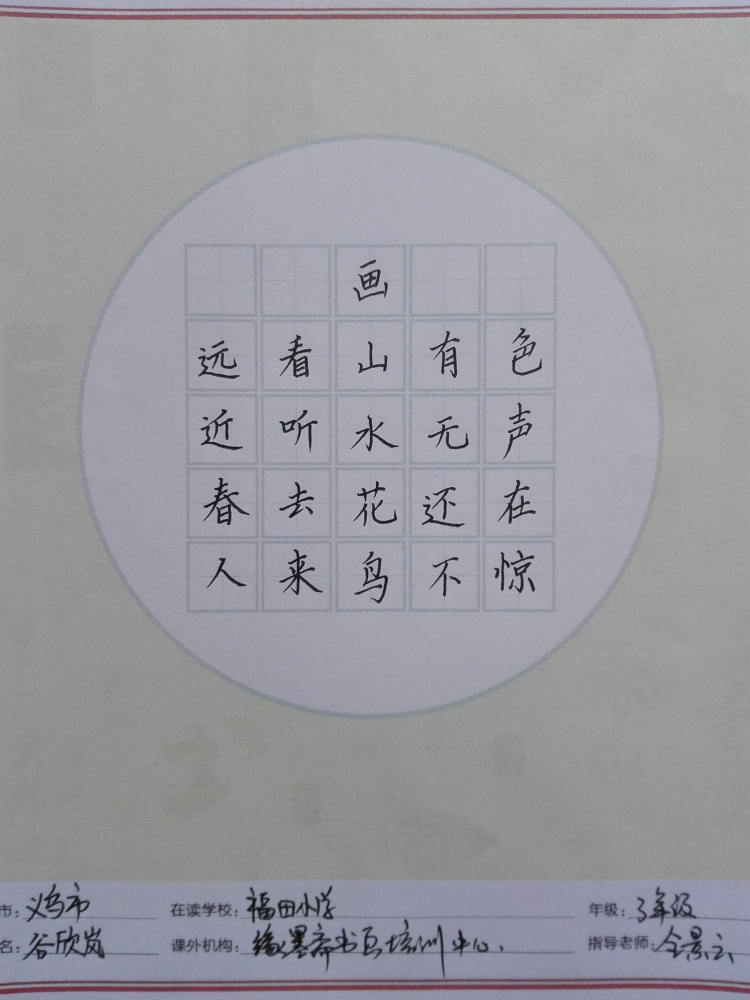 画
远看山有色
近听水无声
春去花还在
人来鸟不惊
市：义乌市 在读学校：福田小学 年级：3年级
名：谷欣岚 课外机构：缘墨斋书画培训中心. 指导老师：全景云